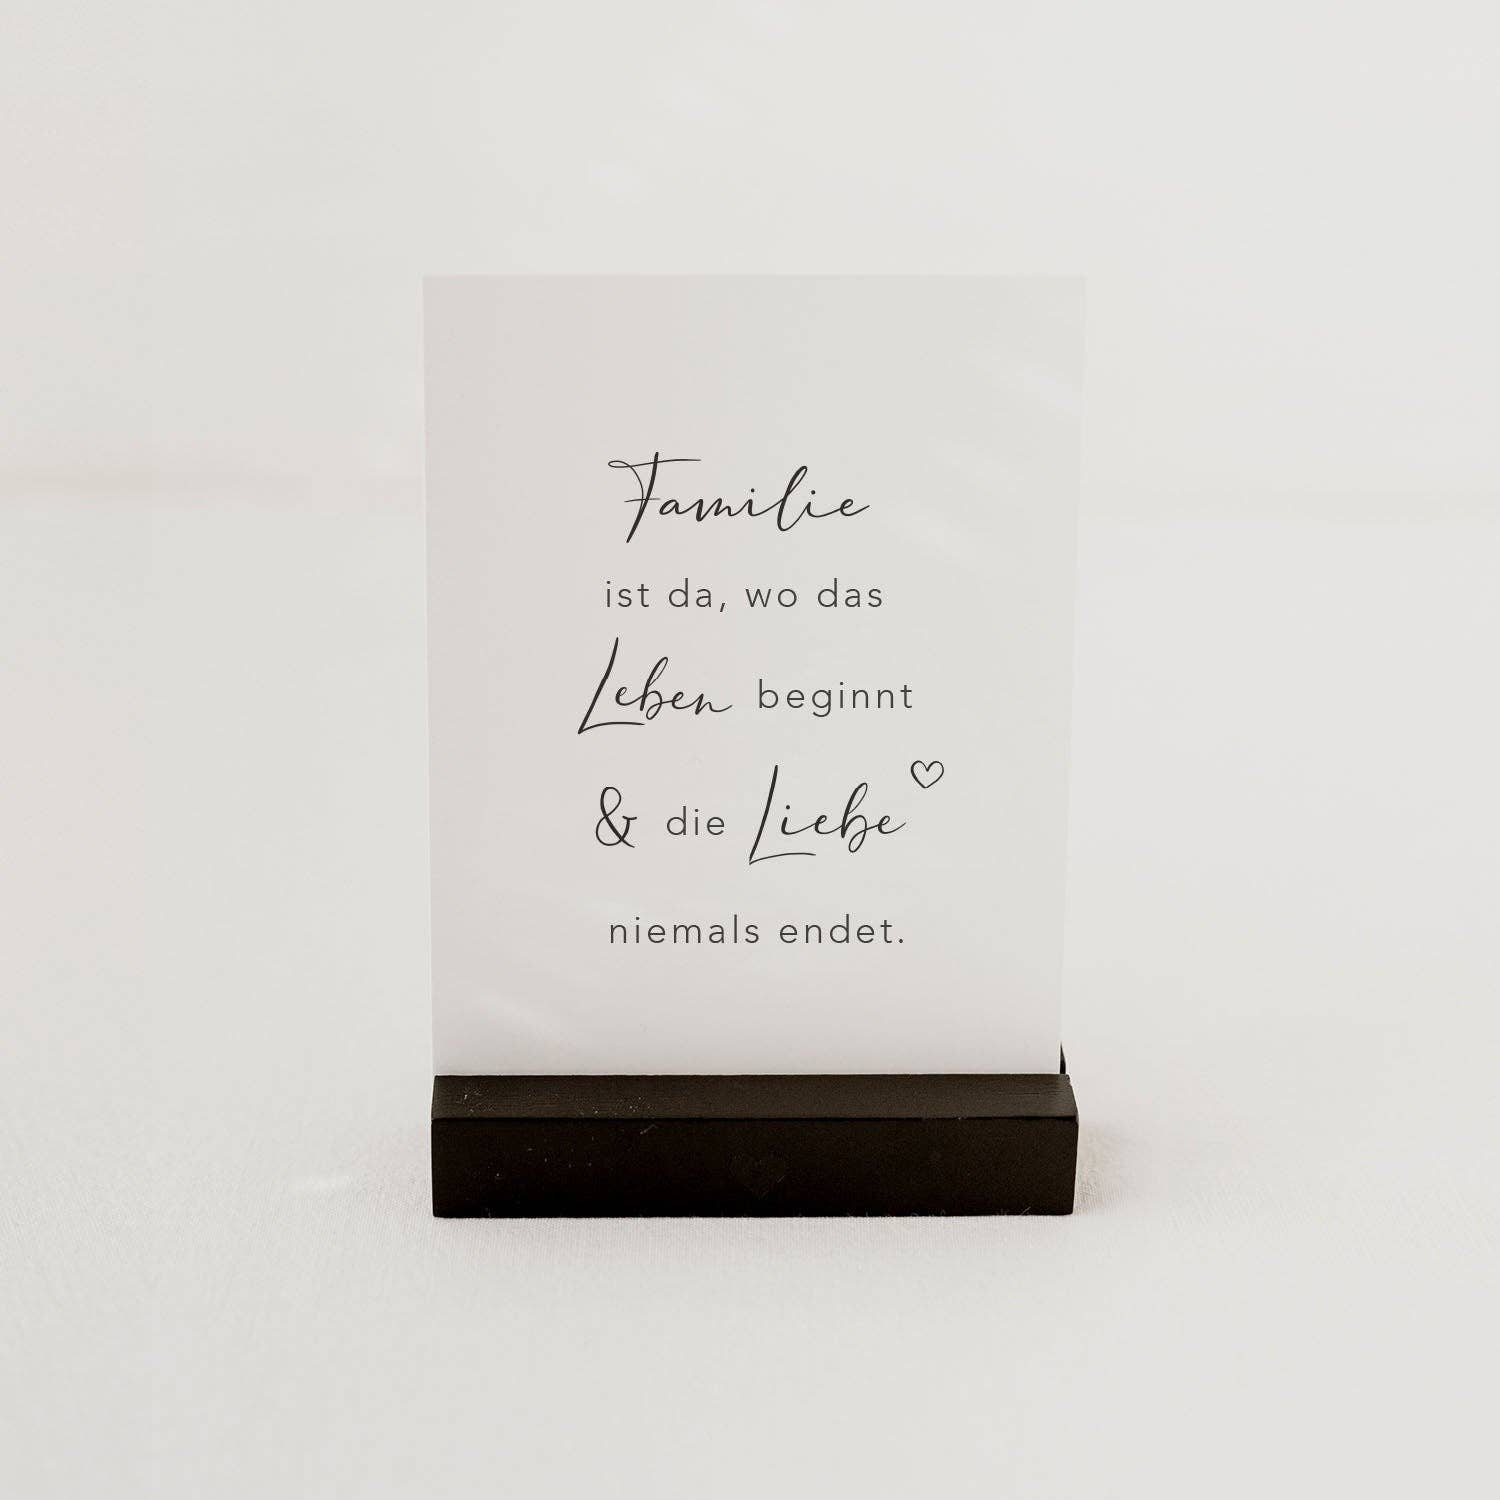 Familie
ist da, wo das
Leben beginnt
& die Liebe
niemals endet.